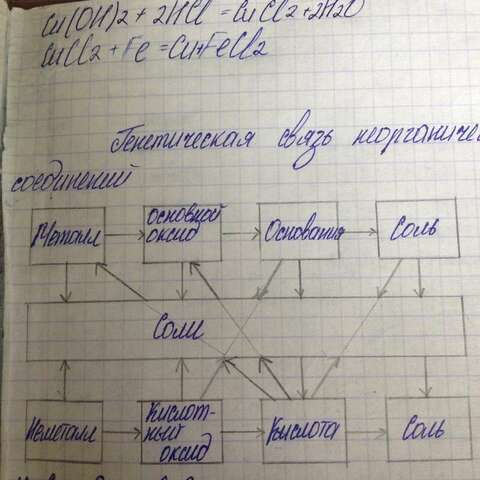 Cu(OH)2 + 2HCl = CuCl2 + 2H2O
CuCl2 + Fe = Cu + FeCl2
Генетическая связь неорганичес
соединений
Металл
основной
оксид
Основания
Соль
Соли
Неметалл
Кислот-
ный
оксид
Кислота
Соль